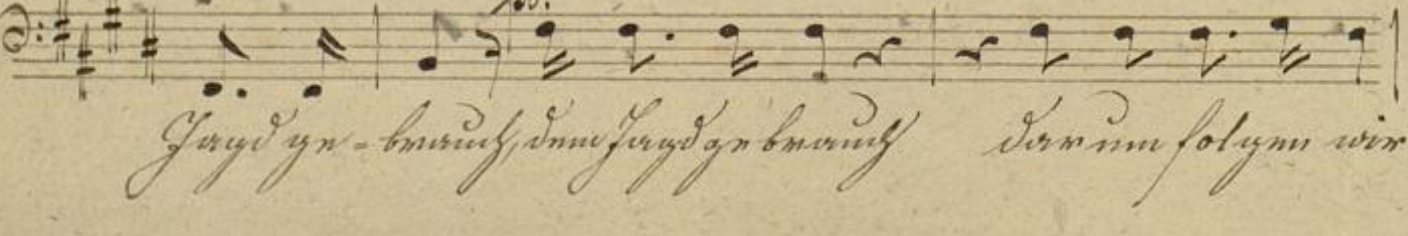 Jagd ge-brauch, dem Jagdgebrauch darum folgen wir